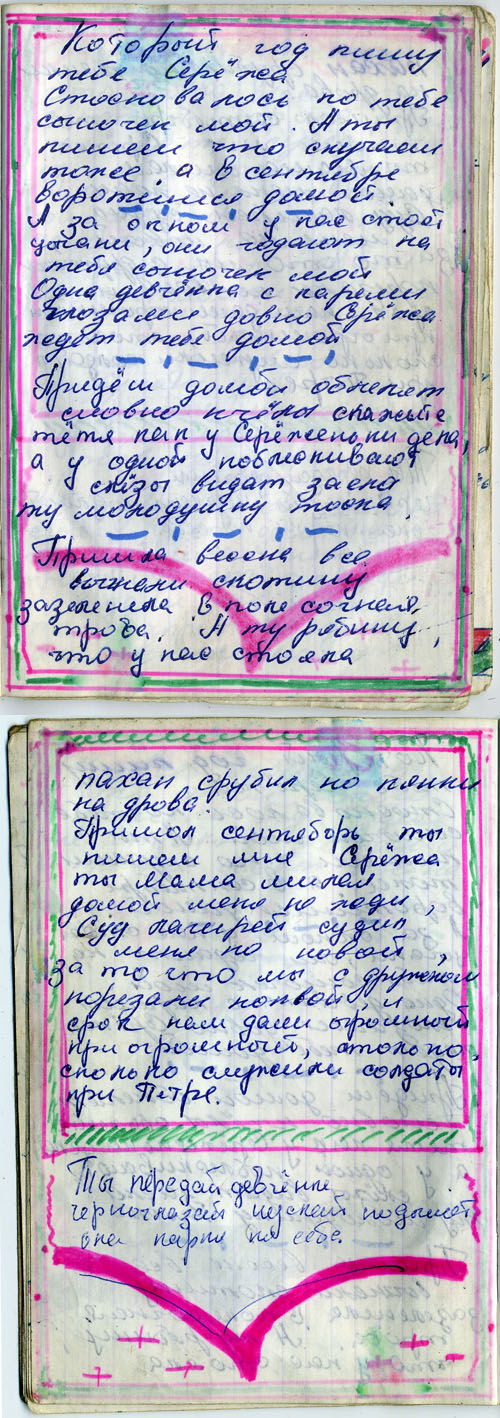 Который год пишу
тебе Серёжа
Стосковалось по тебе
сыночек мой. А ты
пишеш что скучаеш
тоже, а в сентябре
воротишся домой.
А за окном у нас стоят
цыгани, они гадают на
тебя сыночек мой
Одна девчёнка с кареми
глазами довно Серёжа
ждёт тебя домой
Придёш домой облепят
словно пчёлы скажыте
тётя как у Серёженьки дела,
а у одной поблискивают
слёзы видат заела
ту молодушку тоска,
Пришла весена все
выгнали скотину
зазеленела в поле сочная
трова. А ту рябину,
что у нас стояла
пахан срубил по пянки
на дрова
Пришол сентяборь ты
пишеш мне Серёжа
ты мама милая
домой меня не жди,
Суд лагирей судил
меня по новой,
за то что мы с дружком
порезали конвой, и
срок нам дали огромный
при огромный, столько,
сколько служили солдаты
при Петре.
Ты передай девчёнке
черноглазай пускай подыщет
она парня по себе.